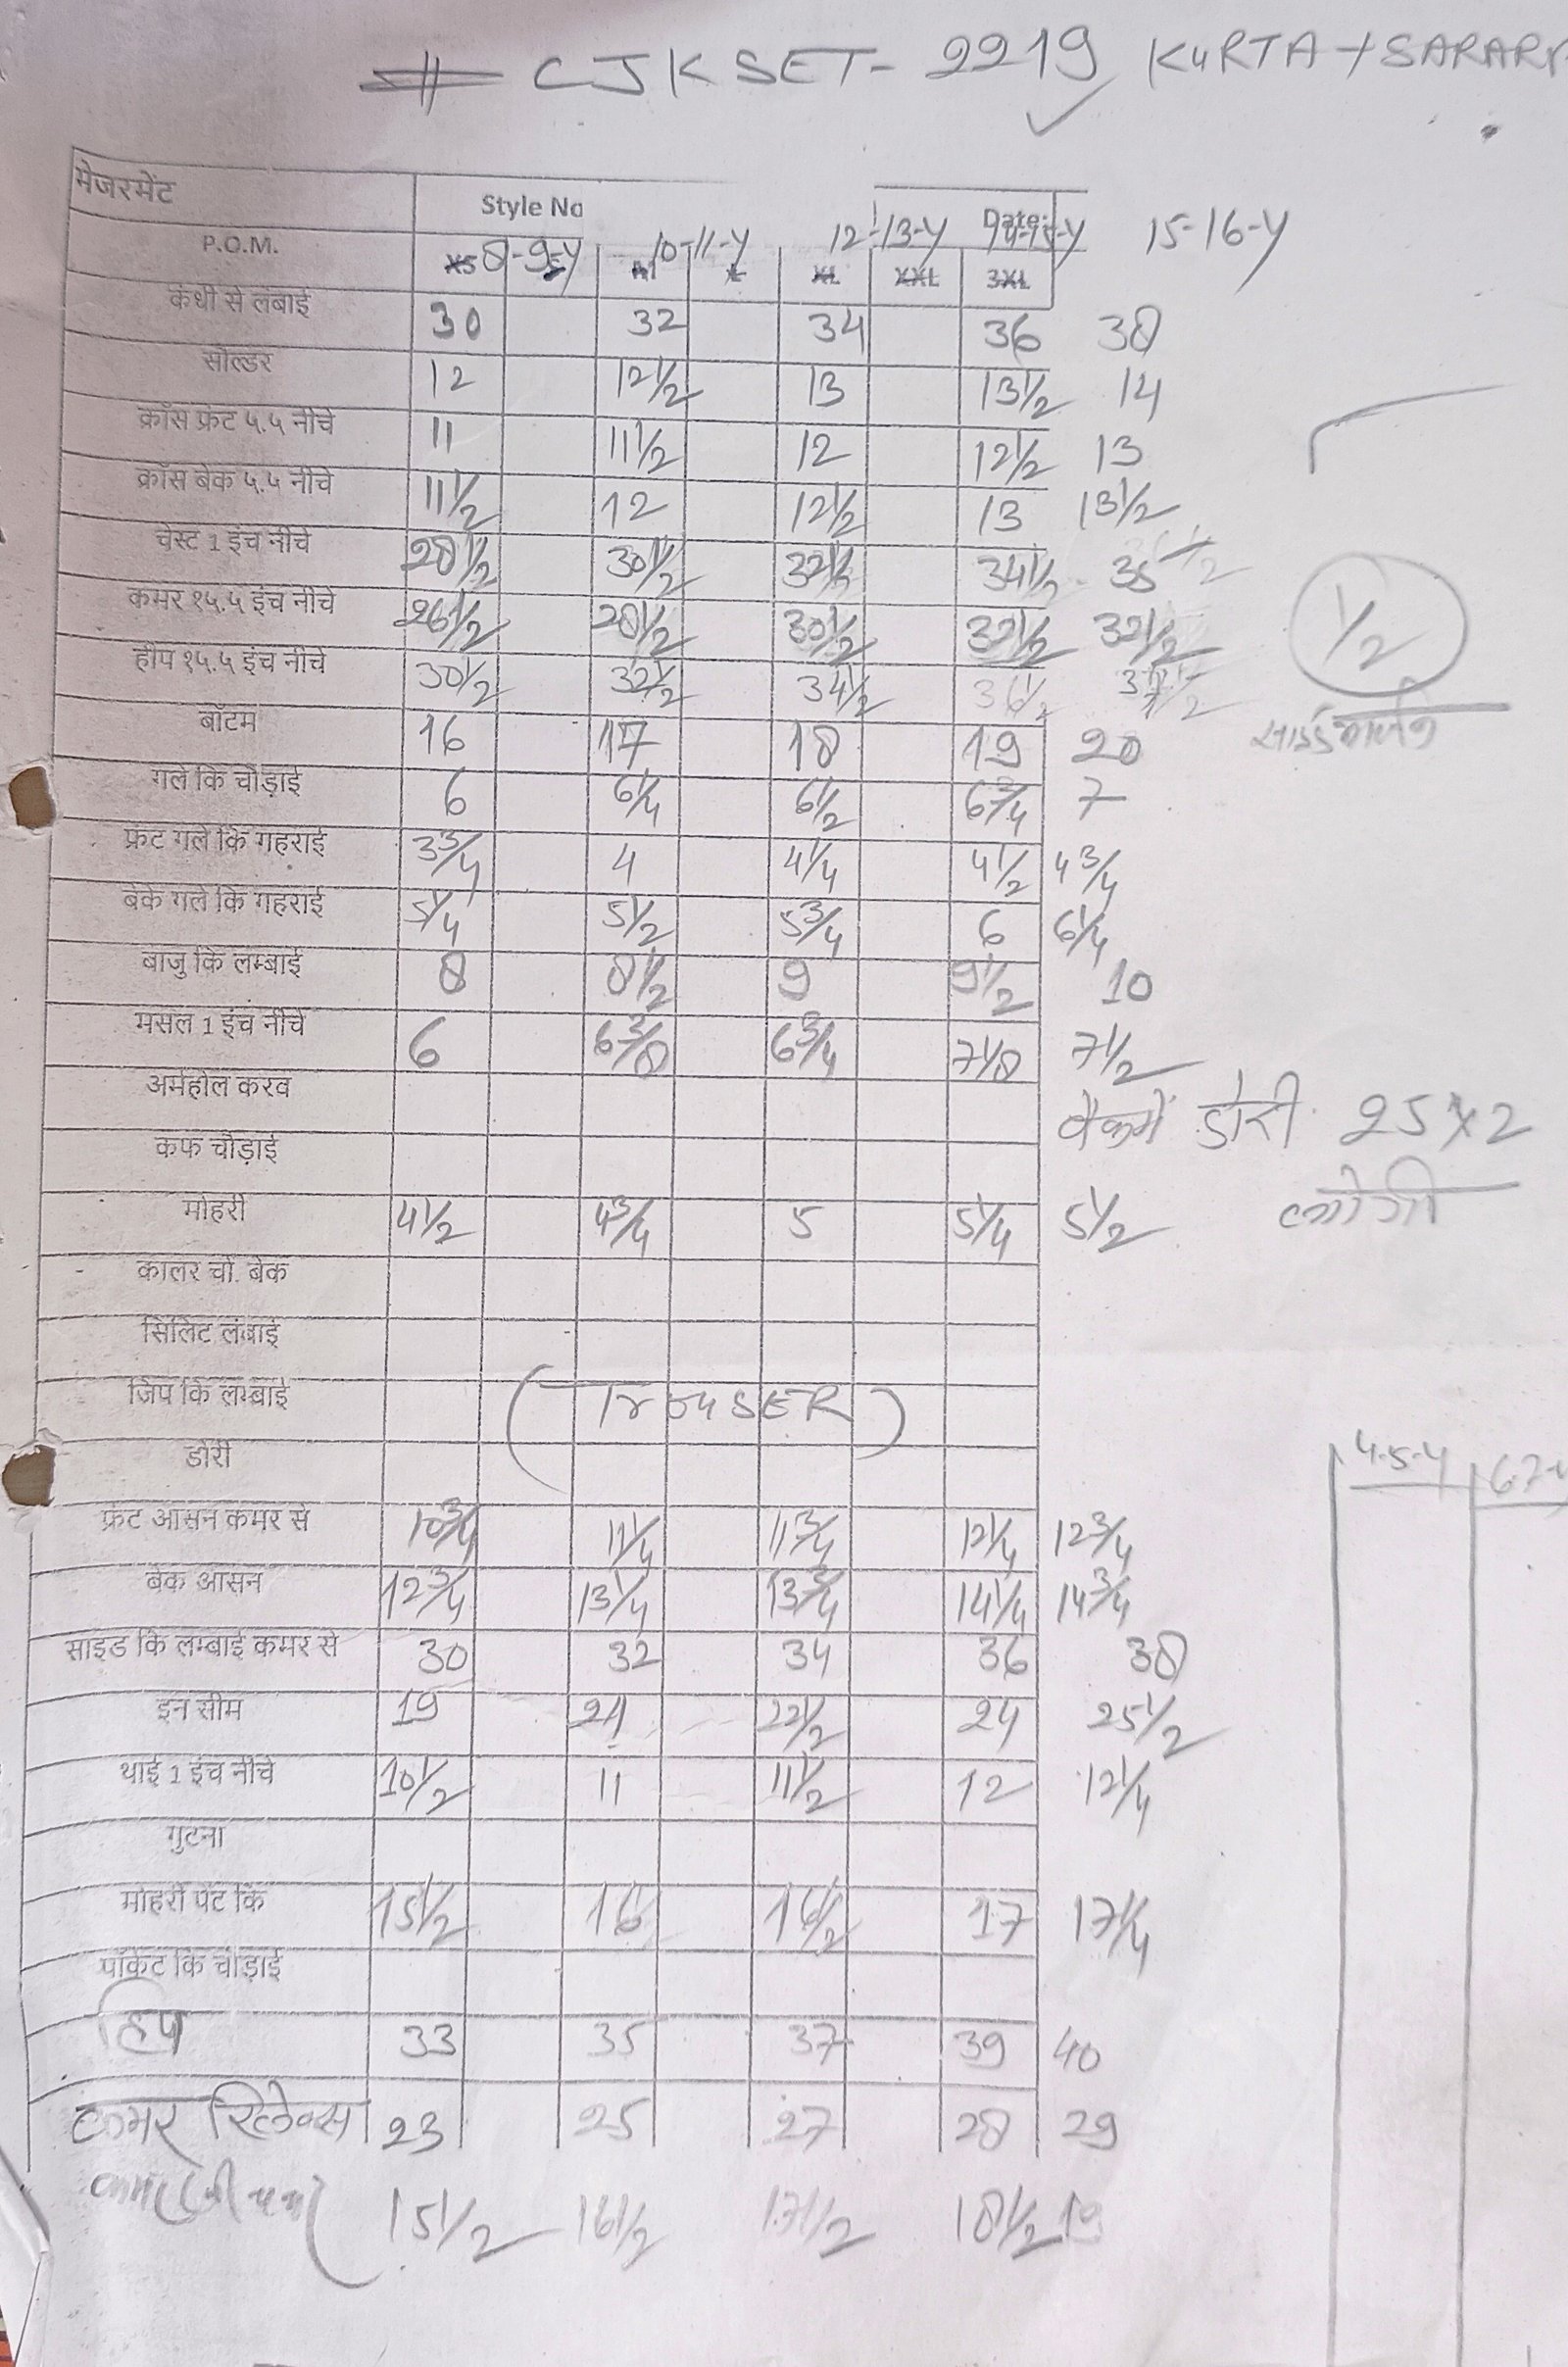 CJK SET- 2219 KURTA + SARARA
मेजरमेंट Style No Date:
P.O.M. 8-9-Y 10-11-Y 12-13-Y 14-15-Y 15-16-Y
XS S M L XL XXL 3XL
कंधी से लंबाई 30 32 34 36 38
सोल्डर 12 12 1/2 13 13 1/2 14
क्रॉस फ्रंट ५.५ नीचे 11 11 1/2 12 12 1/2 13
क्रॉस बेक ५.५ नीचे 11 1/2 12 12 1/2 13 13 1/2
चेस्ट 1 इंच नीचे 28 1/2 30 1/2 32 1/2 34 1/2
कमर १५.५ इंच नीचे 26 1/2 28 1/2 30 1/2 32 1/2 32 1/2
1/2
हीप १५.५ इंच नीचे 30 1/2 32 1/2 34 1/2 36 1/2
बॉटम 16 17 18 19 20
गले कि चौड़ाई 6 6 1/4 6 1/2 6 3/4 7
फ्रंट गले कि गहराई 3 3/4 4 4 1/4 4 1/2 4 3/4
बेक गले कि गहराई 5 1/4 5 1/2 5 3/4 6 6 1/4
बाजु कि लम्बाई 8 8 1/2 9 9 1/2 10
मसल 1 इंच नीचे 6 6 3/8 6 3/4 7 1/8 7 1/2
अर्महोल करव
बैकमें डोरी 25 x 2
कफ चौड़ाई
लगेगी
मोहरी 4 1/2 4 3/4 5 5 1/4 5 1/2
कालर चो. बेक
सिलिट लंबाई
जिप कि लम्बाई
(TrouSER)
डोरी
4-5-Y 6-7-Y
फ्रंट आसन कमर से 10 3/4 11 1/4 11 3/4 12 1/4 12 3/4
बेक आसन 12 3/4 13 1/4 13 3/4 14 1/4 14 3/4
साइड कि लम्बाई कमर से 30 32 34 36 38
इन सीम 19 21 22 1/2 24 25 1/2
थाई 1 इंच नीचे 10 1/2 11 11 1/2 12 12 1/4
गुटना
मोहरी पेंट कि 15 1/2 16 16 1/2 17 17 1/4
पॉकेट कि चौड़ाई
हिप 33 35 37 39 40
कमर रिलेक्स 23 25 27 28 29
15 1/2 16 1/2 17 1/2 18 1/2 19